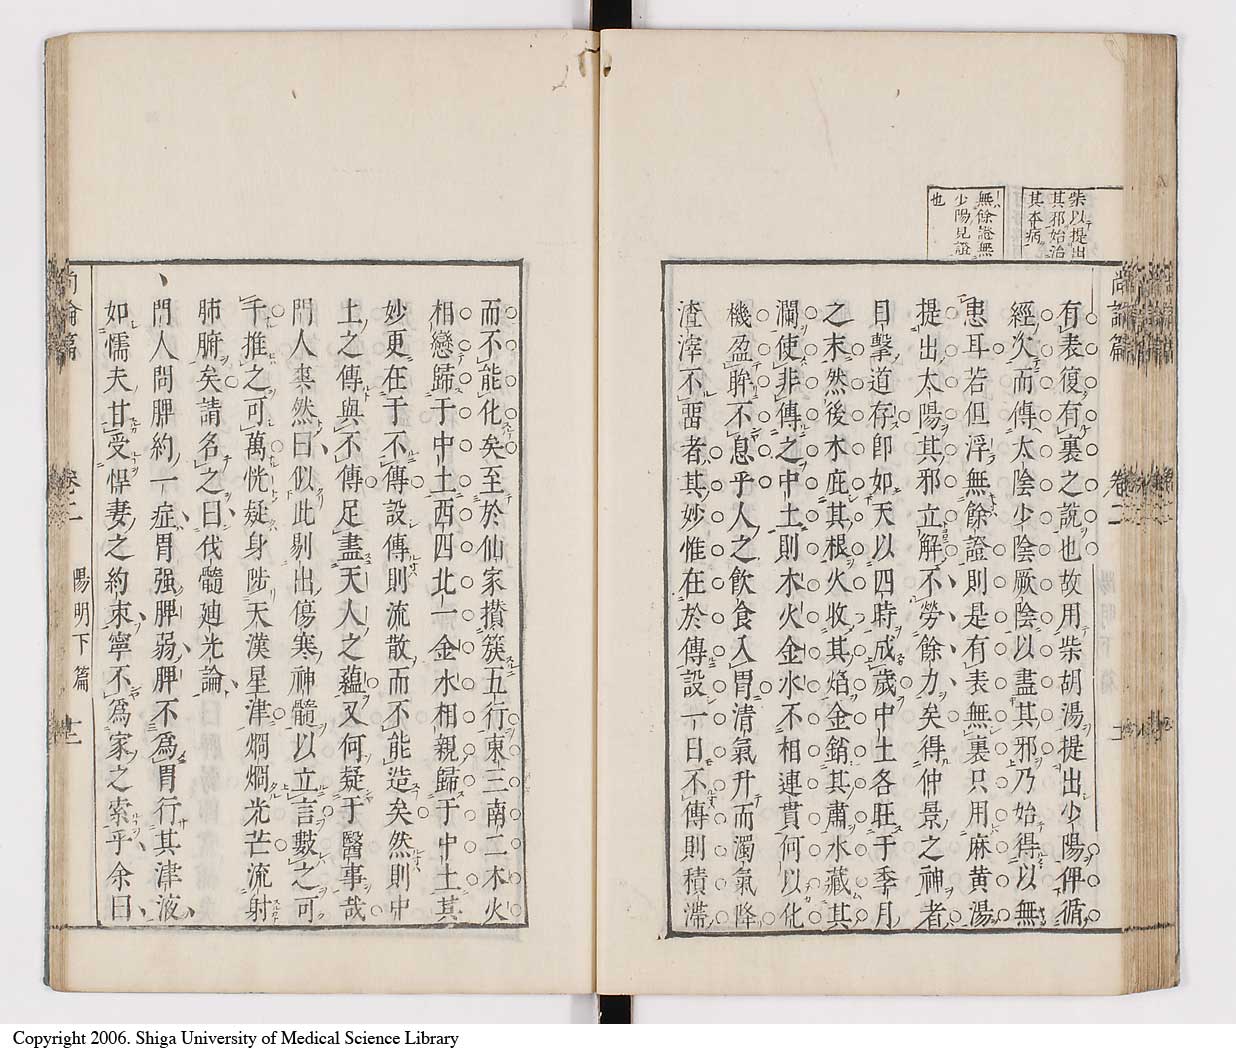 柴以提出
其邪始治
其本病
無餘證無
少陽見證
也
有表復有裏之說也故用柴胡湯提出少陽俾循
經次而傳太陰少陰厥陰以盡其邪乃始得以無
患耳若但浮無餘證則是有表無裏只用麻黄湯
提出太陽其邪立解不勞餘力矣得仲景之神者
目擊道存即如天以四時成歲中土各旺于季月
之末然後木庇其根火收其焰金銷其肅水藏其
瀾使非傳之中土則木火金水不相連貫何以化
機盈眸不息乎人之飲食入胃清氣升而濁氣降
渣滓不畱者其妙惟在於傳設一日不傳則積滯
尚論篇
卷二
而不能化矣至於仙家攢簇五行東三南二木火
相戀歸于中土西四北一金水相親歸于中土其
妙更在于不傳設傳則流散而不能造矣然則中
土之傳與不傳足盡天人之蘊又何疑于醫事哉
門人喪然曰似此剔出傷寒神髓以立言數之可
千推之可萬恍疑身陟天漢星津燗燗光芒流射
肺腑矣請名之曰伐髓廸光論
門人問脾約一症胃强脾弱脾不爲胃行其津液
如懦夫甘受悍妻之約束寧不爲家之索乎余曰
尚論篇
卷二
陽明下篇
廿二
Copyright 2006. Shiga University of Medical Science Library